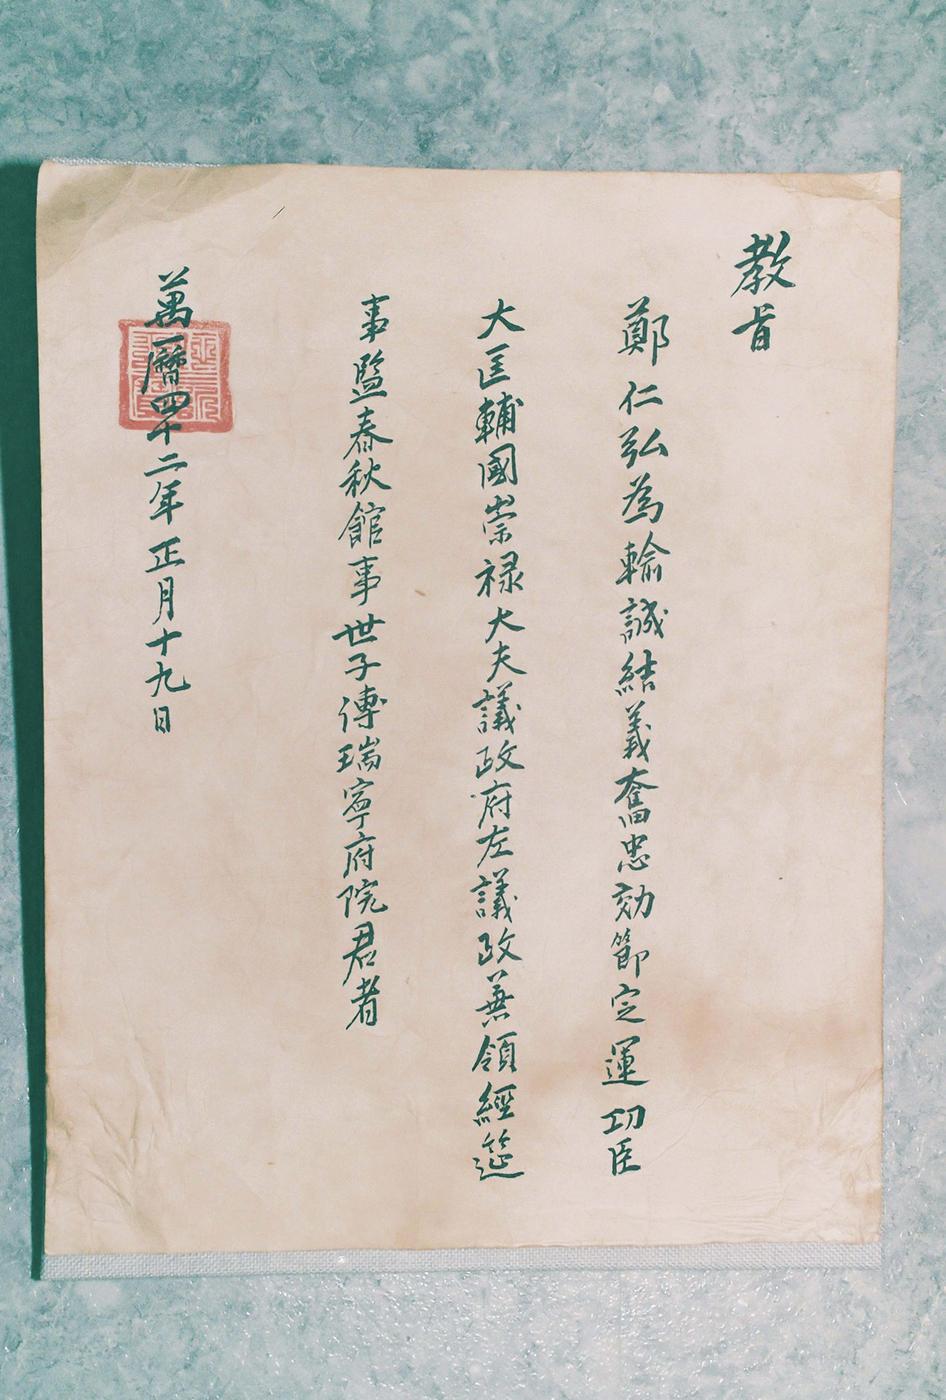 教旨
鄭仁弘為輸誠結義奮忠効節定運功臣
大匡輔國崇禄大夫議政府左議政兼領經筵
事監春秋館事世子傅瑞寧府院君者
萬曆四十二年正月十九日